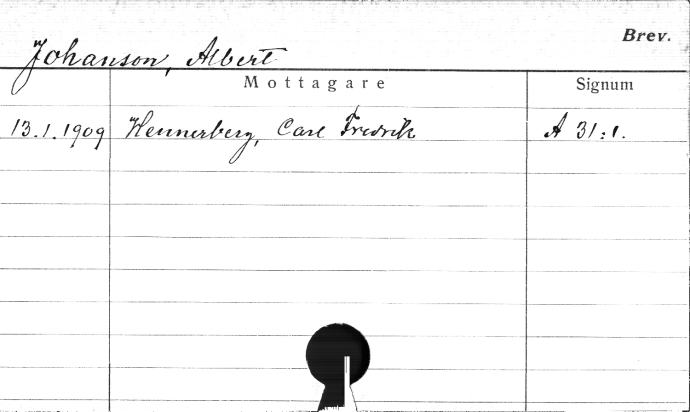 Brev.
Johanson, Albert
Mottagare Signum
13.1.1909 Hennerberg, Carl Fredrik A 31:1.